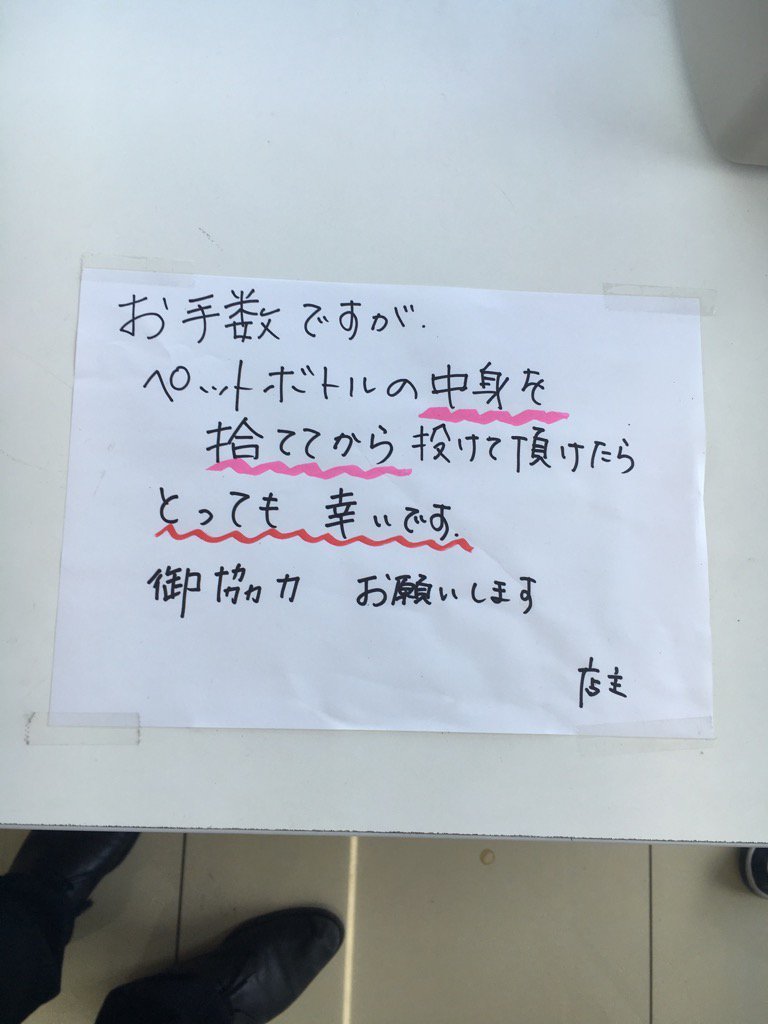 お手数ですが.
ペットボトルの中身を
捨ててから投けて頂けたら
とっても 幸いです.
御協力 お願いします
店主